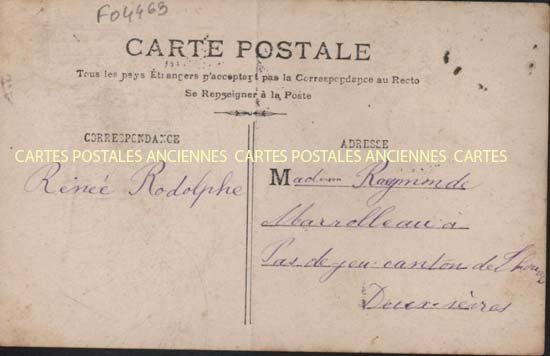 F04463
CARTE POSTALE
Tous les pays Étrangers n'acceptent pas la Correspondance au Recto
Se Renseigner à la Poste
CORRESPONDANCE
ADRESSE
CARTES POSTALES ANCIENNES CARTES POSTALES ANCIENNES CARTES
Rénée Rodolphe
Madam Raymonde
Marrolleau à
Pas de jeu canton de Thouars
Deux-sèvres